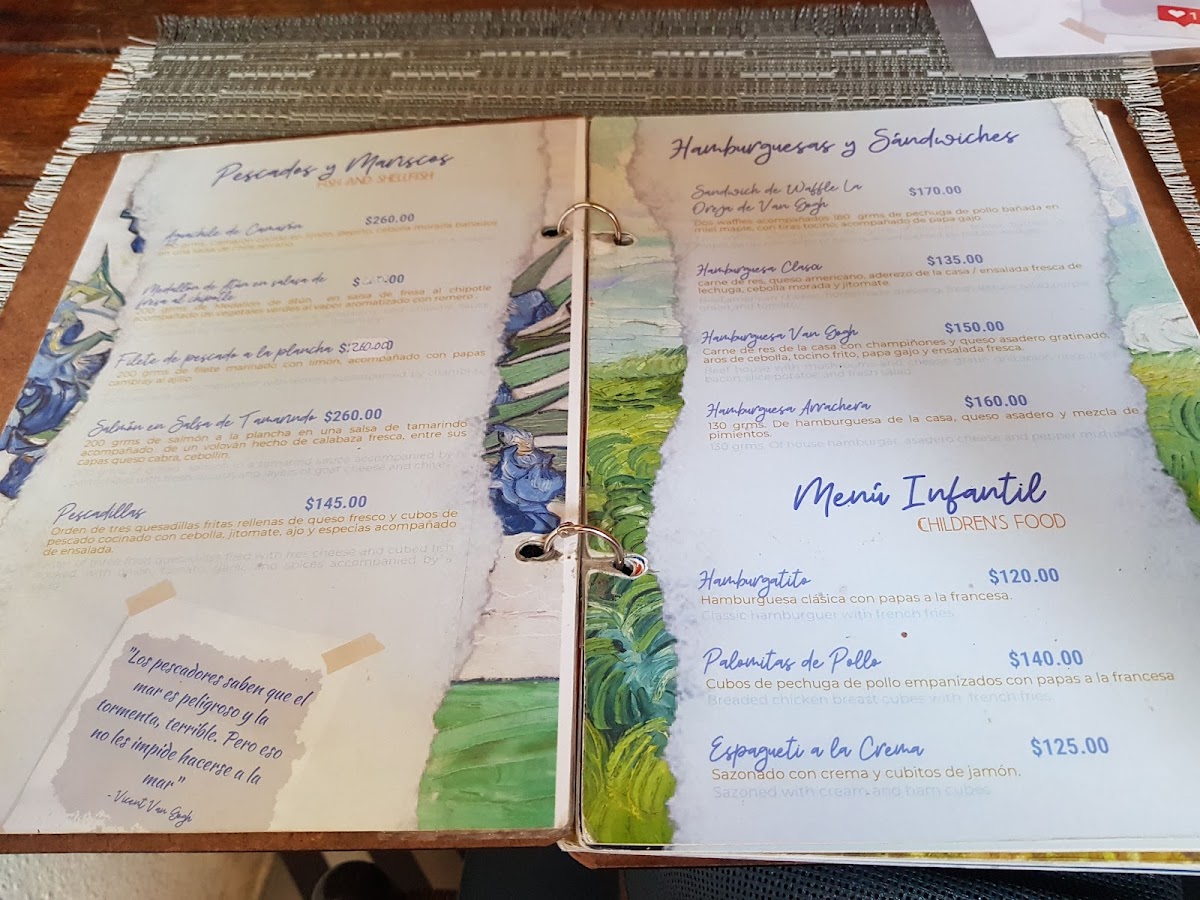 Pescados y Mariscos
FISH AND SHELLFISH
Aguachile de Camarón $260.00
Medallón de Atún en salsa de
fresa al chipotle
200 grms. de Medallón de atún en salsa de fresa al chipotle
acompañado de vegetales verdes al vapor aromatizado con romero.
Filete de pescado a la plancha $260.00
200 grms de filete marinado con limón, acompañado con papas
cambray al ajillo
Salmón en Salsa de Tamarindo $260.00
200 grms de salmón a la plancha en una salsa de tamarindo
acompañado de un volován hecho de calabaza fresca, entre sus
capas queso cabra, cebollín.
Pescadillas $145.00
Orden de tres quesadillas fritas rellenas de queso fresco y cubos de
pescado cocinado con cebolla, jitomate, ajo y especias acompañado
de ensalada.
"Los pescadores saben que el
mar es peligroso y la
tormenta, terrible. Pero eso
no les impide hacerse a la
mar"
- Vicent Van Gogh
Hamburguesas y Sándwiches
Sandwich de Waffle La
Oreja de Van Gogh $170.00
Dos waffles acompañados 180 grms de pechuga de pollo bañada en
miel maple, con tiras tocino; acompañado de papa gajo.
Hamburguesa Clasica $135.00
carne de res, queso americano, aderezo de la casa / ensalada fresca de
lechuga, cebolla morada y jitomate.
Hamburguesa Van Gogh $150.00
Carne de res de la casa con champiñones y queso asadero gratinado,
aros de cebolla, tocino frito, papa gajo y ensalada fresca.
Hamburguesa Arrachera $160.00
130 grms. De hamburguesa de la casa, queso asadero y mezcla de
pimientos.
130 grms. Of house hamburger, asadero cheese and pepper
Menú Infantil
CHILDREN'S FOOD
Hamburgatito $120.00
Hamburguesa clásica con papas a la francesa.
Classic hamburguer with french fries.
Palomitas de Pollo $140.00
Cubos de pechuga de pollo empanizados con papas a la francesa
Breaded chicken breast cubes with french fries.
Espagueti a la Crema $125.00
Sazonado con crema y cubitos de jamón.
Sazoned with cream and ham cubes